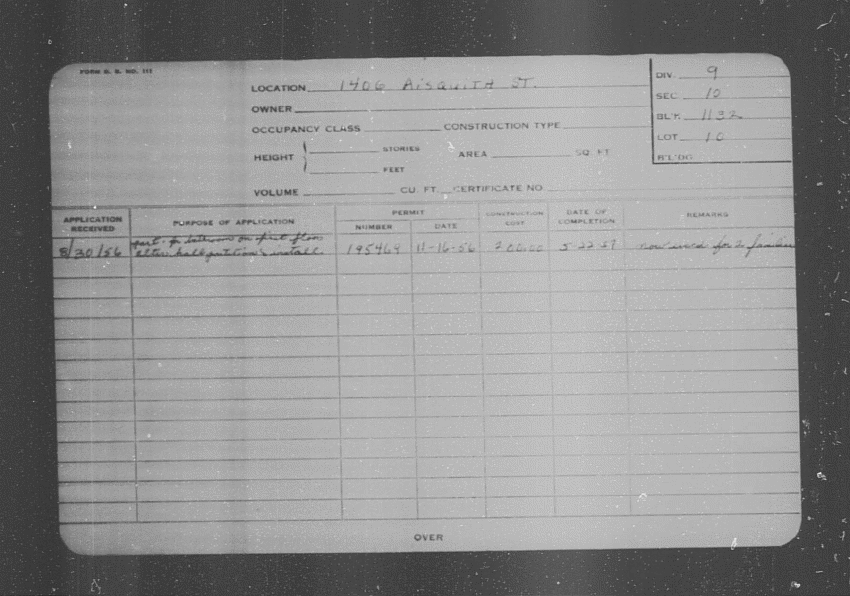 FORM B. B. NO. 111
LOCATION 1406 Aisquith ST.
OWNER
OCCUPANCY CLASS CONSTRUCTION TYPE
HEIGHT STORIES AREA SQ. FT.
FEET
VOLUME CU. FT. CERTIFICATE NO.
DIV. 9
SEC. 10
BL'K 1132
LOT 10
B'L'DG
APPLICATION RECEIVED PURPOSE OF APPLICATION PERMIT NUMBER DATE CONSTRUCTION COST DATE OF COMPLETION REMARKS
part. for bathroom on first floor
8/30/56 alter hall partition & install 195469 11-16-56 200.00 5-22-57 now used for 2 families
OVER